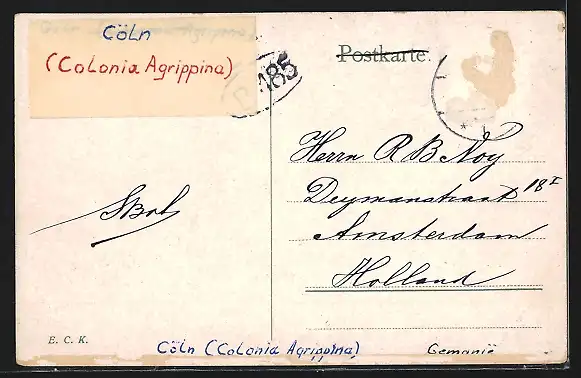 Cöln
(Colonia Agrippina)
185
Postkarte.
Herrn R B Noy
Deymanstraat 18 I
Amsterdam
Holland
E. C. K.
Cöln (Colonia Agrippina)
Gemanië